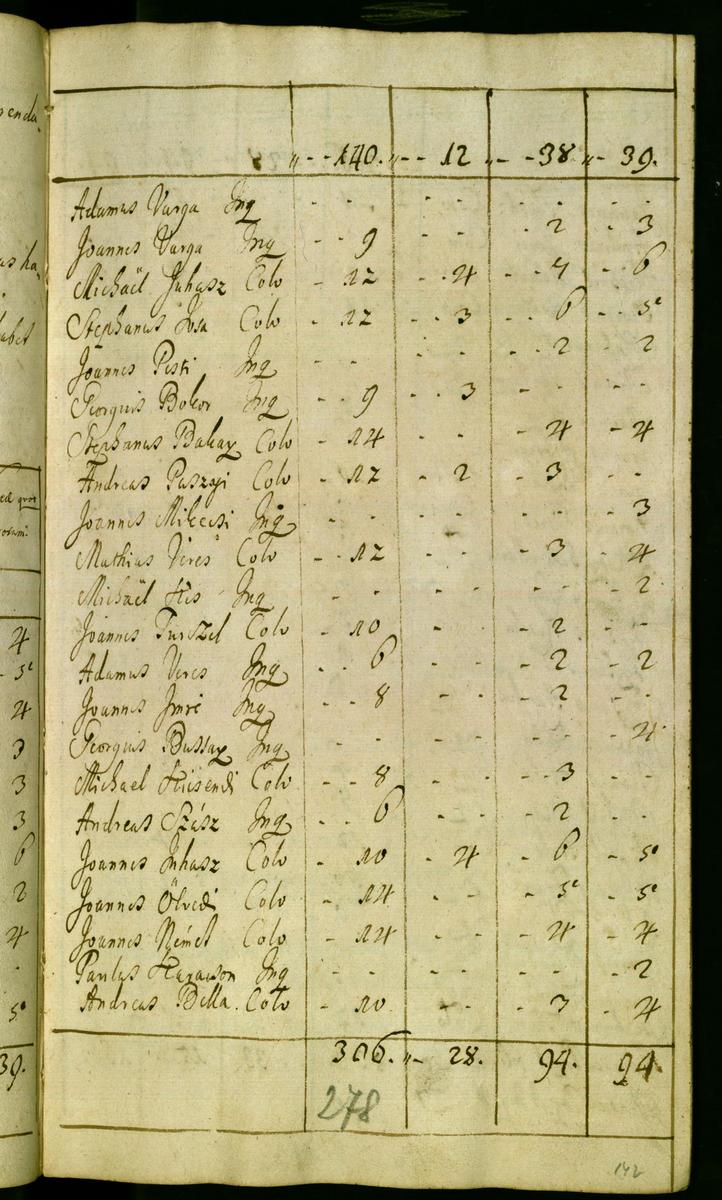 " - - 140. " - - 12 " - - 38. " - 39.
Adamus Varga Inq - - - - - - - -
Joannes Varga Inq - - 9 - - - 2 - 3
Michaël Juhasz Colo - 12 - 4 - 4 - 6
Stephanus Josa Colo - 12 - 3 - 6 - - 5
Joannes Pesti Inq - - - - - - 2 - 2
Georgius Bokor Inq - - 9 - 3 - - - -
Stephanus Bakay Colo - 14 - - - 4 - 4
Andreas Paszgi Colo - 12 - 2 - 3 - -
Joannes Mikecsi Inq - - - - - - - 3
Mathias Veres Colo - - 12 - - - 3 - 4
Michaël Kis Inq - - - - - - - 2
Joannes Turczel Colo - 10 - - - 2 - -
Adamus Veres Inq - - 6 - - - 2 - 2
Joannes Imre Inq - - 8 - - - 2 - -
Georgius Bussay Inq - - - - - - - 4
Michael Kisendi Colo - - 8 - - - 3 - -
Andreas Szász Inq - - 6 - - - 2 - -
Joannes Juhasz Colo - 10 - 4 - 6 - 5
Joannes Ötvedi Colo - 14 - - - 5 - 5
Joannes Német Colo - 14 - - - 4 - 4
Paulus Karacson Inq - - - - - - - 2
Andreas Bella. Colo - 10 - - - 3 - 4
306. " - 28. 94. 94.
278
142